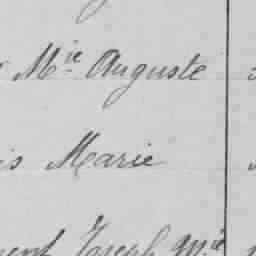 Mie Auguste
is Marie
Joseph Mie